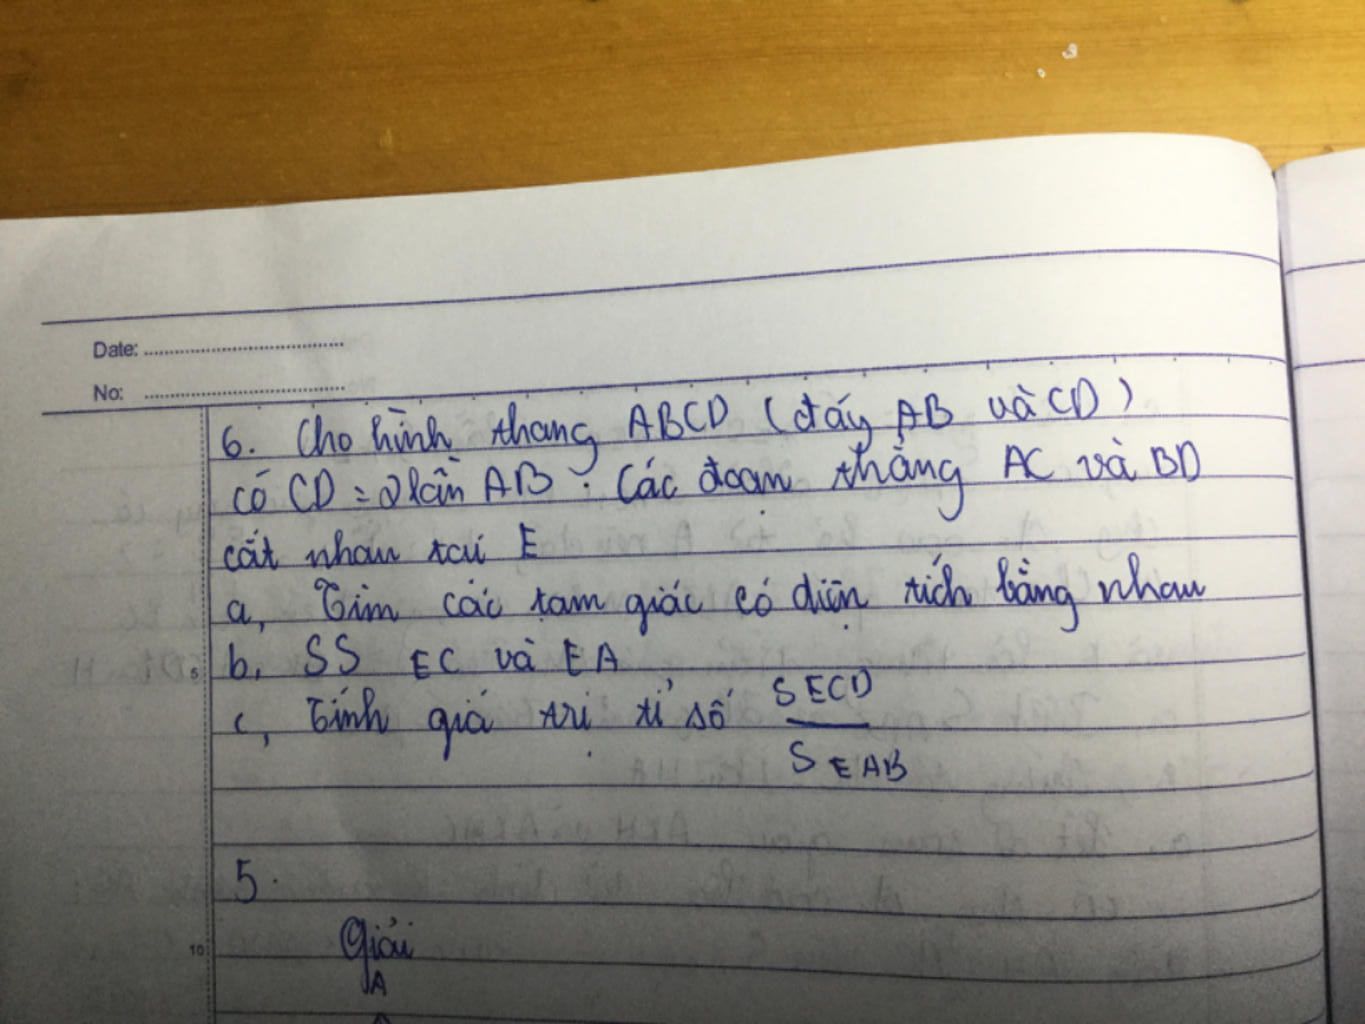 Date:
No:
6. Cho hình thang ABCD (đáy AB và CD)
có CD = 2 lần AB. Các đoạn thẳng AC và BD
cắt nhau tại E
a, Tìm các tam giác có diện tích bằng nhau
5
b, SS EC và EA
c, Tính giá trị tỉ số SECD
SEAB
5.
10
Giải
A